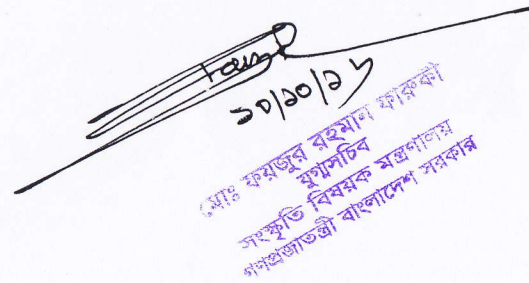 ১৮/১০/১৮
মোঃ ফয়জুর রহমান ফারুকী
যুগ্মসচিব
সংস্কৃতি বিষয়ক মন্ত্রণালয়
গণপ্রজাতন্ত্রী বাংলাদেশ সরকার